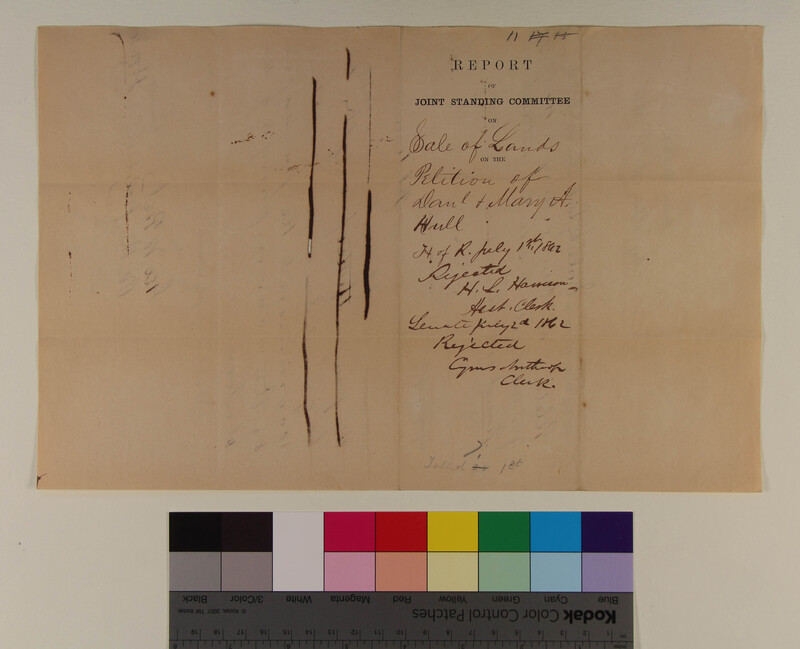 11
REPORT
OF
JOINT STANDING COMMITTEE
ON
Sale of Lands
ON THE
Petition of
Danl & Mary A.
Hull
H. of R. July 1st, 1862
Rejected
H. L. Harrison
Asst. Clerk.
Senate July 2d 1862
Rejected
Cyrus Northrop
Clerk.
1st
Blue
Cyan
Green
Yellow
Red
Magenta
White
3/Color
Black
Kodak Color Control Patches
© Kodak, 2007 TM: Kodak
1 2 3 4 5 6 7 8 9 10 11 12 13 14 15 16 17 18 19